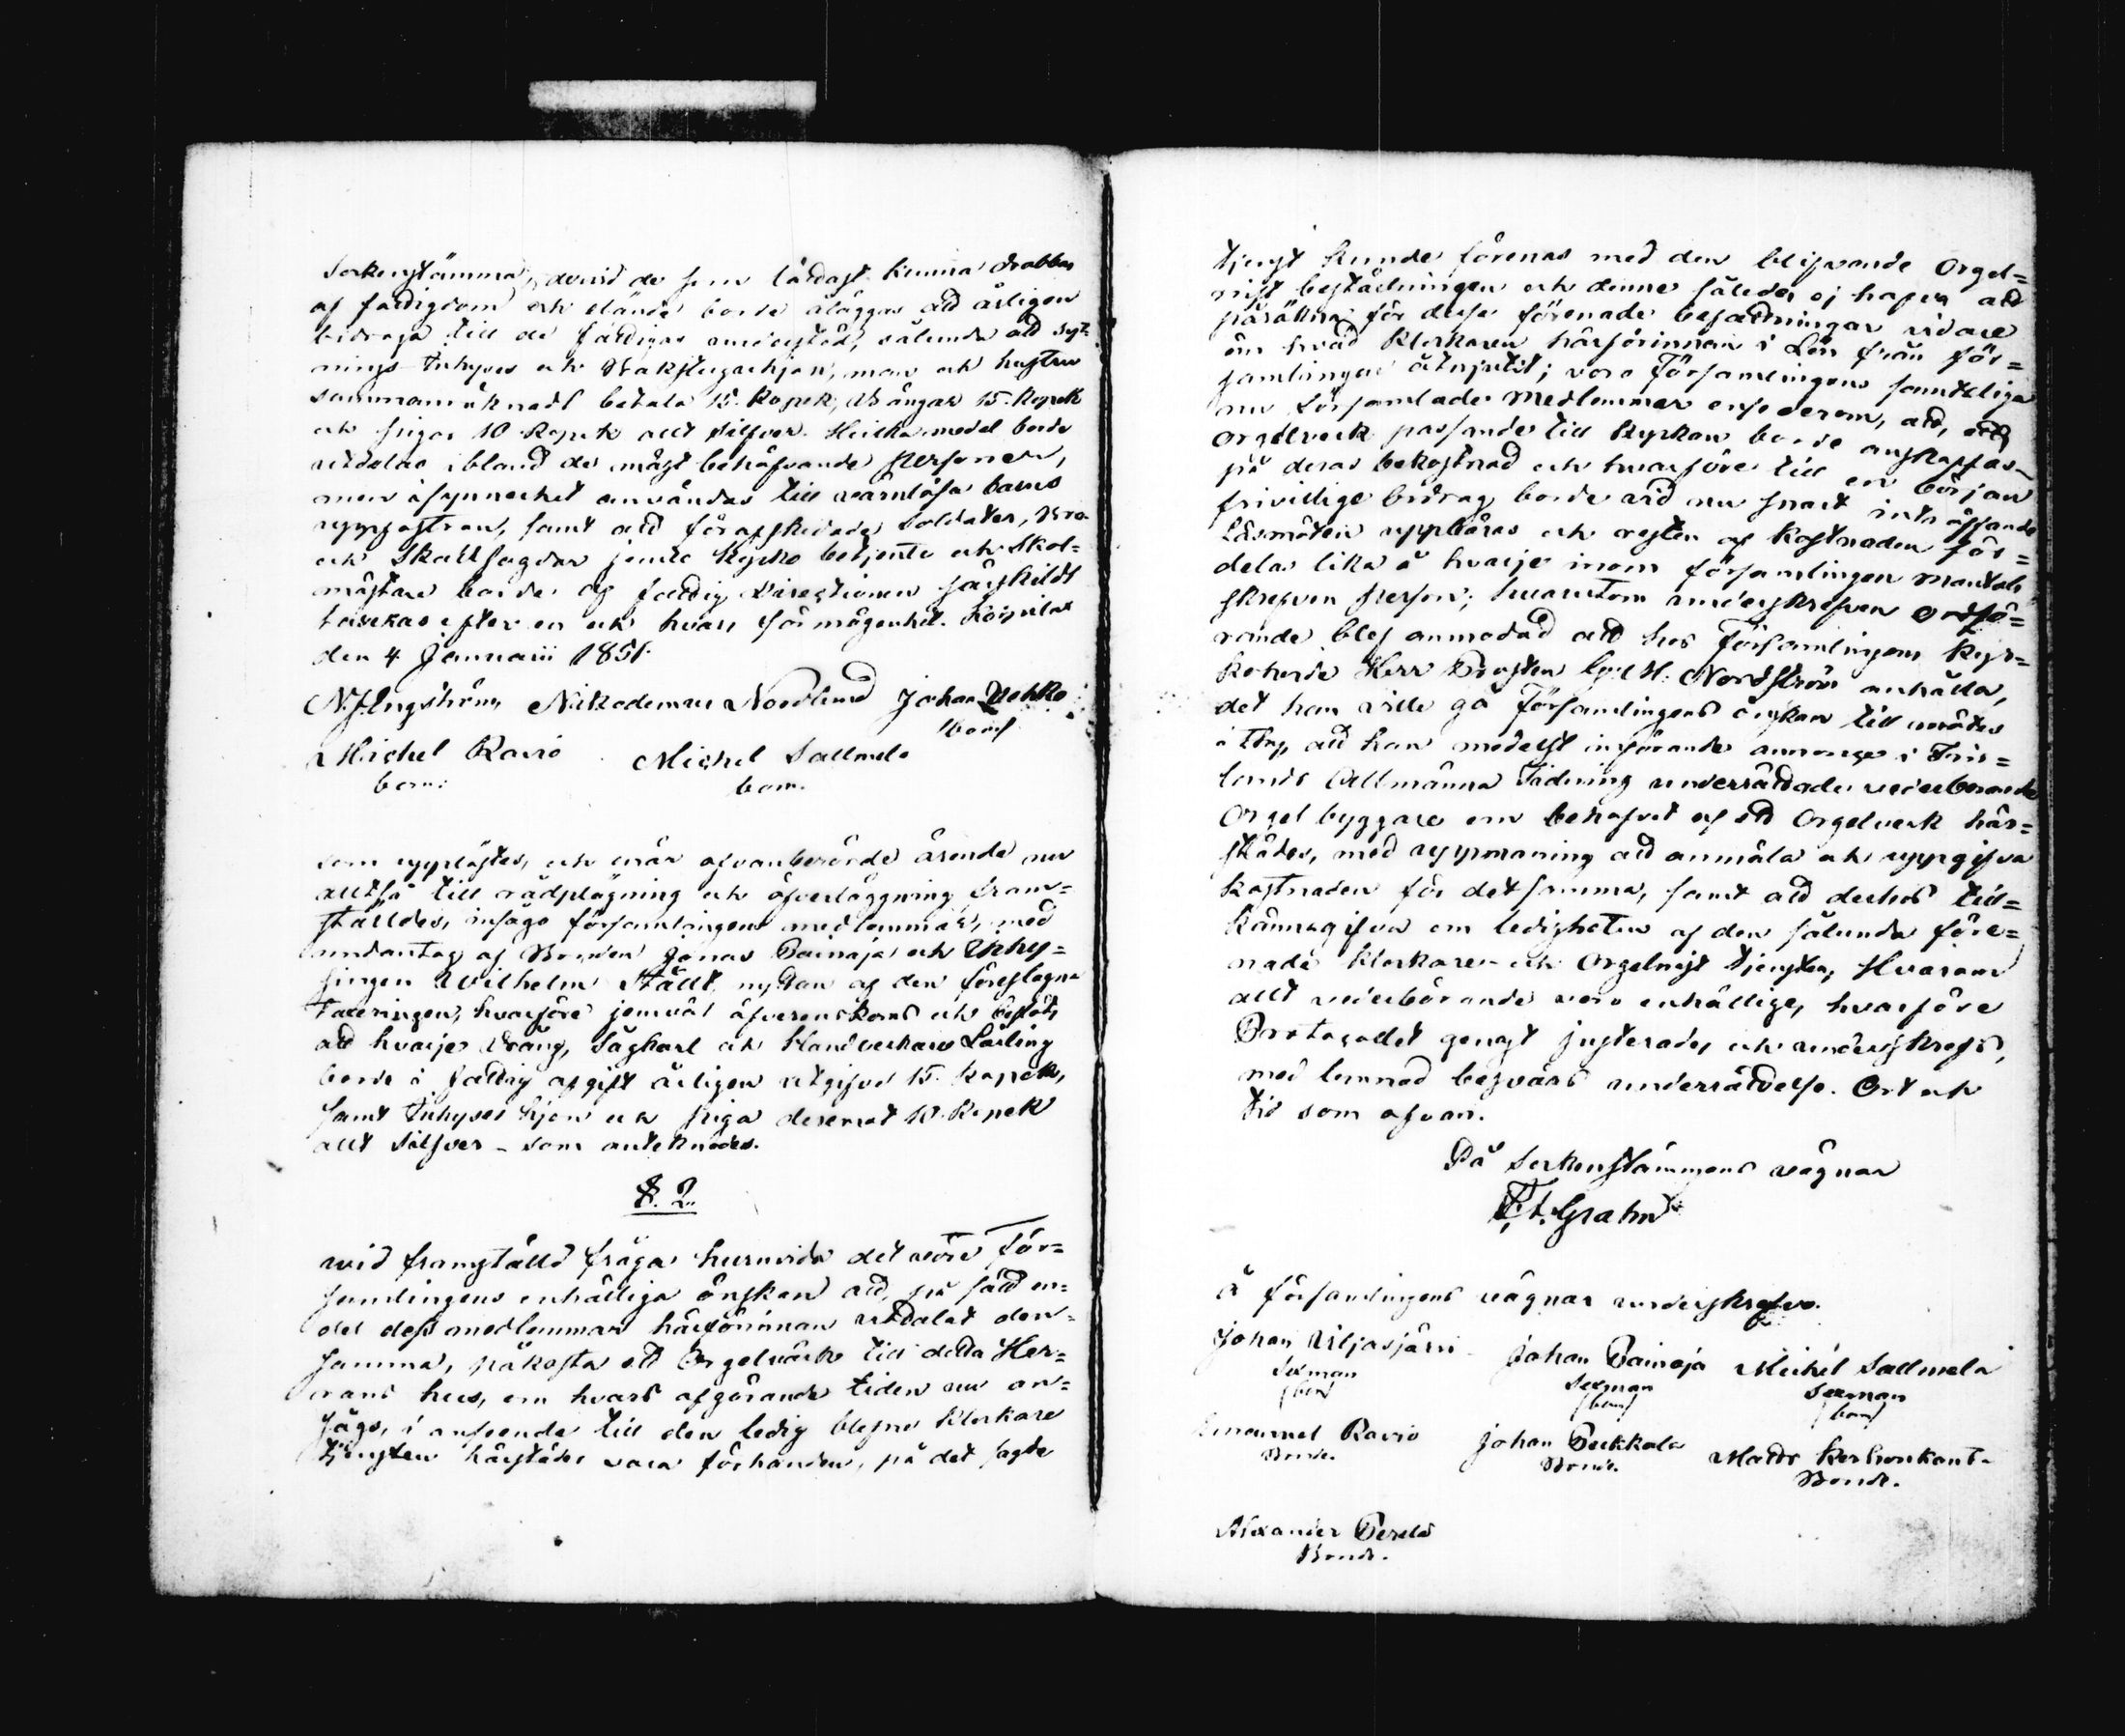 Sockenstämma, dervid de som lättast kunna drabbas
af fattigdom och elände borde åläggas att årligen
bidraga till de fattigas understöd, sålunda att Syt-
nings Inhyses och Backstuguhjon, man och hustru
sammanräknadt betala 15 Kopek, Drängar 15 Kopek
och pigor 10 Kopek allt Silfver. Hvilka medel borde
utdelas ibland de mäst behöfvande personer,
men i synnerhet användas till värnlösa barns
uppfostran, samt att förafskedade Soldater, Bro
och Skallfogdar jemte Kyrko betjente och Skol=
mästare borde af fattig Directionen särskildt
taxeras efter en och hvars förmögenhet.
den 4 Januarii 1851.
N. J. Engström, Nikodemus Nordlund Johan
bom:
Michel Ravio Michel Sallmela
bom: bom.
som upplästes, och när ofvanberörde ärende nu
alltså till rådplägning och öfverläggning fram=
ställdes, insågo församlingens medlemmar, med
undantag af Bonden Jonas Painaja och Inhy=
singen Wilhelm Ställt nyttan af den föreslagna
Taxeringen, hvarföre jemväl öfverenskoms och beslöts
att hvarje Dräng, Sågkarl och Handverkare Lärling
borde i fattig afgift årligen utgifva 15 Kopek,
samt Inhyses hjon och piga deremot 10 Kopek
allt Silfver - som antecknades.
§. 2.
Wid framställd fråga huruvida det vore För=
samlingens enhälliga önskan att, på sätt en=
del dess medlemmar härförinnan uttalat den=
samma, påkosta ett Orgelvärk till detta Her=
rans hus, om hvars afgörande tiden nu an=
sågs, i anseende till den ledig blefne Klockare
tjensten härstädes vara förhanden, på det sagde
tjenst kunde förenas med den blifvande Orgel=
nist beställningen och denne således ej hafva att
påräkna för dessa förenade befattningar vidare
än hvad Klockaren härförinnan i Lön från för=
samlingen åtnjutit; voro Församlingens samtelige
nu församlade Medlemmar ense derom, att, ett
Orgelverk passande till Kyrkan borde anskaffas
på deras bekostnad och hvarföre till en början
frivillige bidrag borde vid nu snart inträffande
Läsmöten uppbäras och resten af Kostnaden för=
delas lika å hvarje inom församlingen mantals
skrefven person; hvarutom underskrefven Ordfö=
rande blef anmodad att hos Församlingens Kyr=
koherde Herr Prosten H. Nordström anhålla,
det han ville gå Församlingens önskan till mötes
i thy, att han medelst införande annonçe i Fin=
lands Allmänna Tidning underrättade vederbörande
Orgel byggare om behofvet af ett Orgelverk här=
städes, med uppmaning att anmäla och uppgifva
kostnaden för detsamma, samt att derhos till=
kännagifva om ledigheten af den sålunda före=
nade Klockare- och Orgelnist tjensten; Hvarom
allt vederbörande voro enhällige, hvarföre
Protocollet genast justerades och underskrefs,
med lemnad besvärs underrättelse. Ort och
tid som ofvan.
På Sockenstämmans vägnar
Grahn
å församlingens vägnar underskrefvo.
Johan Viljasjärvi Johan Painaja Michel Sallmela
Sexman Sexman Sexman
(bom) (bom) (bom)
Emanuel Ravio Johan Pekkala Matts
Bonde. Bonde. Bonde.
Alexander Perälä
Bonde.